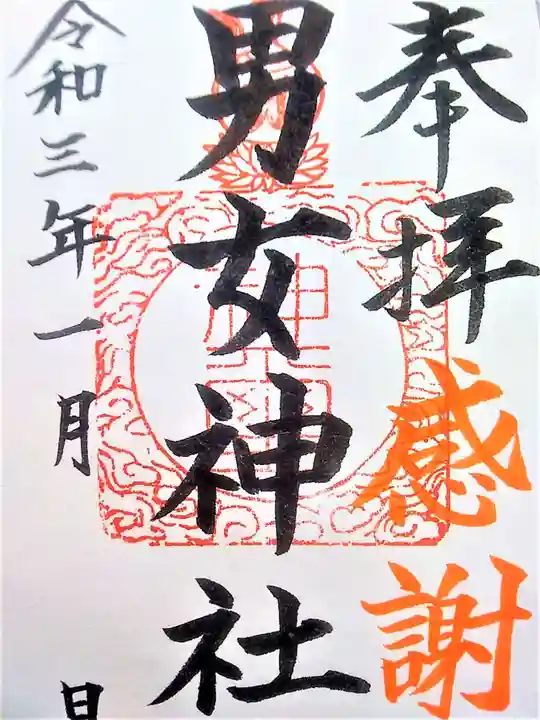 奉拝
感謝
男女神社
令和三年一月
日